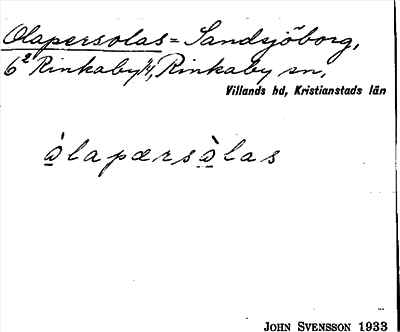 Olapersolas = Sandsjöborg,
6² Rinkaby 14, Rinkaby sn,
Villands hd, Kristianstads län
òlapærsòlas
JOHN SVENSSON 1933